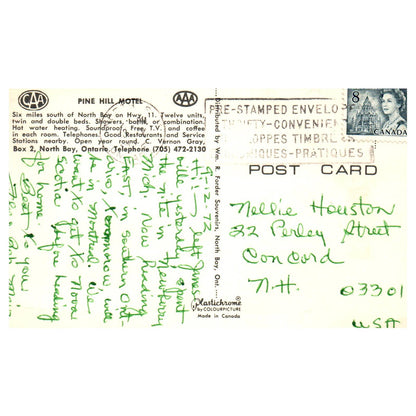 CAA
PINE HILL MOTEL
AAA
Six miles south of North Bay on Hwy. 11. Twelve units,
twin and double beds. Showers, baths, or combination.
Hot water heating. Soundproof. Free T.V. and coffee
in each room. Telephones. Good Restaurants and Service
Stations nearby. Open year round. C. Vernon Gray,
Box 2, North Bay, Ontario. Telephone (705) 472-2130
Distributed by Wm. R. Forder Souvenirs, North Bay, Ont.
PRE-STAMPED ENVELOPES
THRIFTY-CONVENIENT
ENVELOPPES TIMBRÉES
PRATIQUES
8
CANADA
POST CARD
9-12-72
Hi: left Jones
ville yesterday spent
the nite in Newberry
Mich. Now heading
East, in southern Ont-
ario, tomorrow will
be in Montreal. We
want to get to Nova
Scotia before heading
for home
Best to you
Nellie Houston
22 Perley Street
Concord
N.H. 03301
USA
Plastichrome®
by COLOURPICTURE
Made in Canada